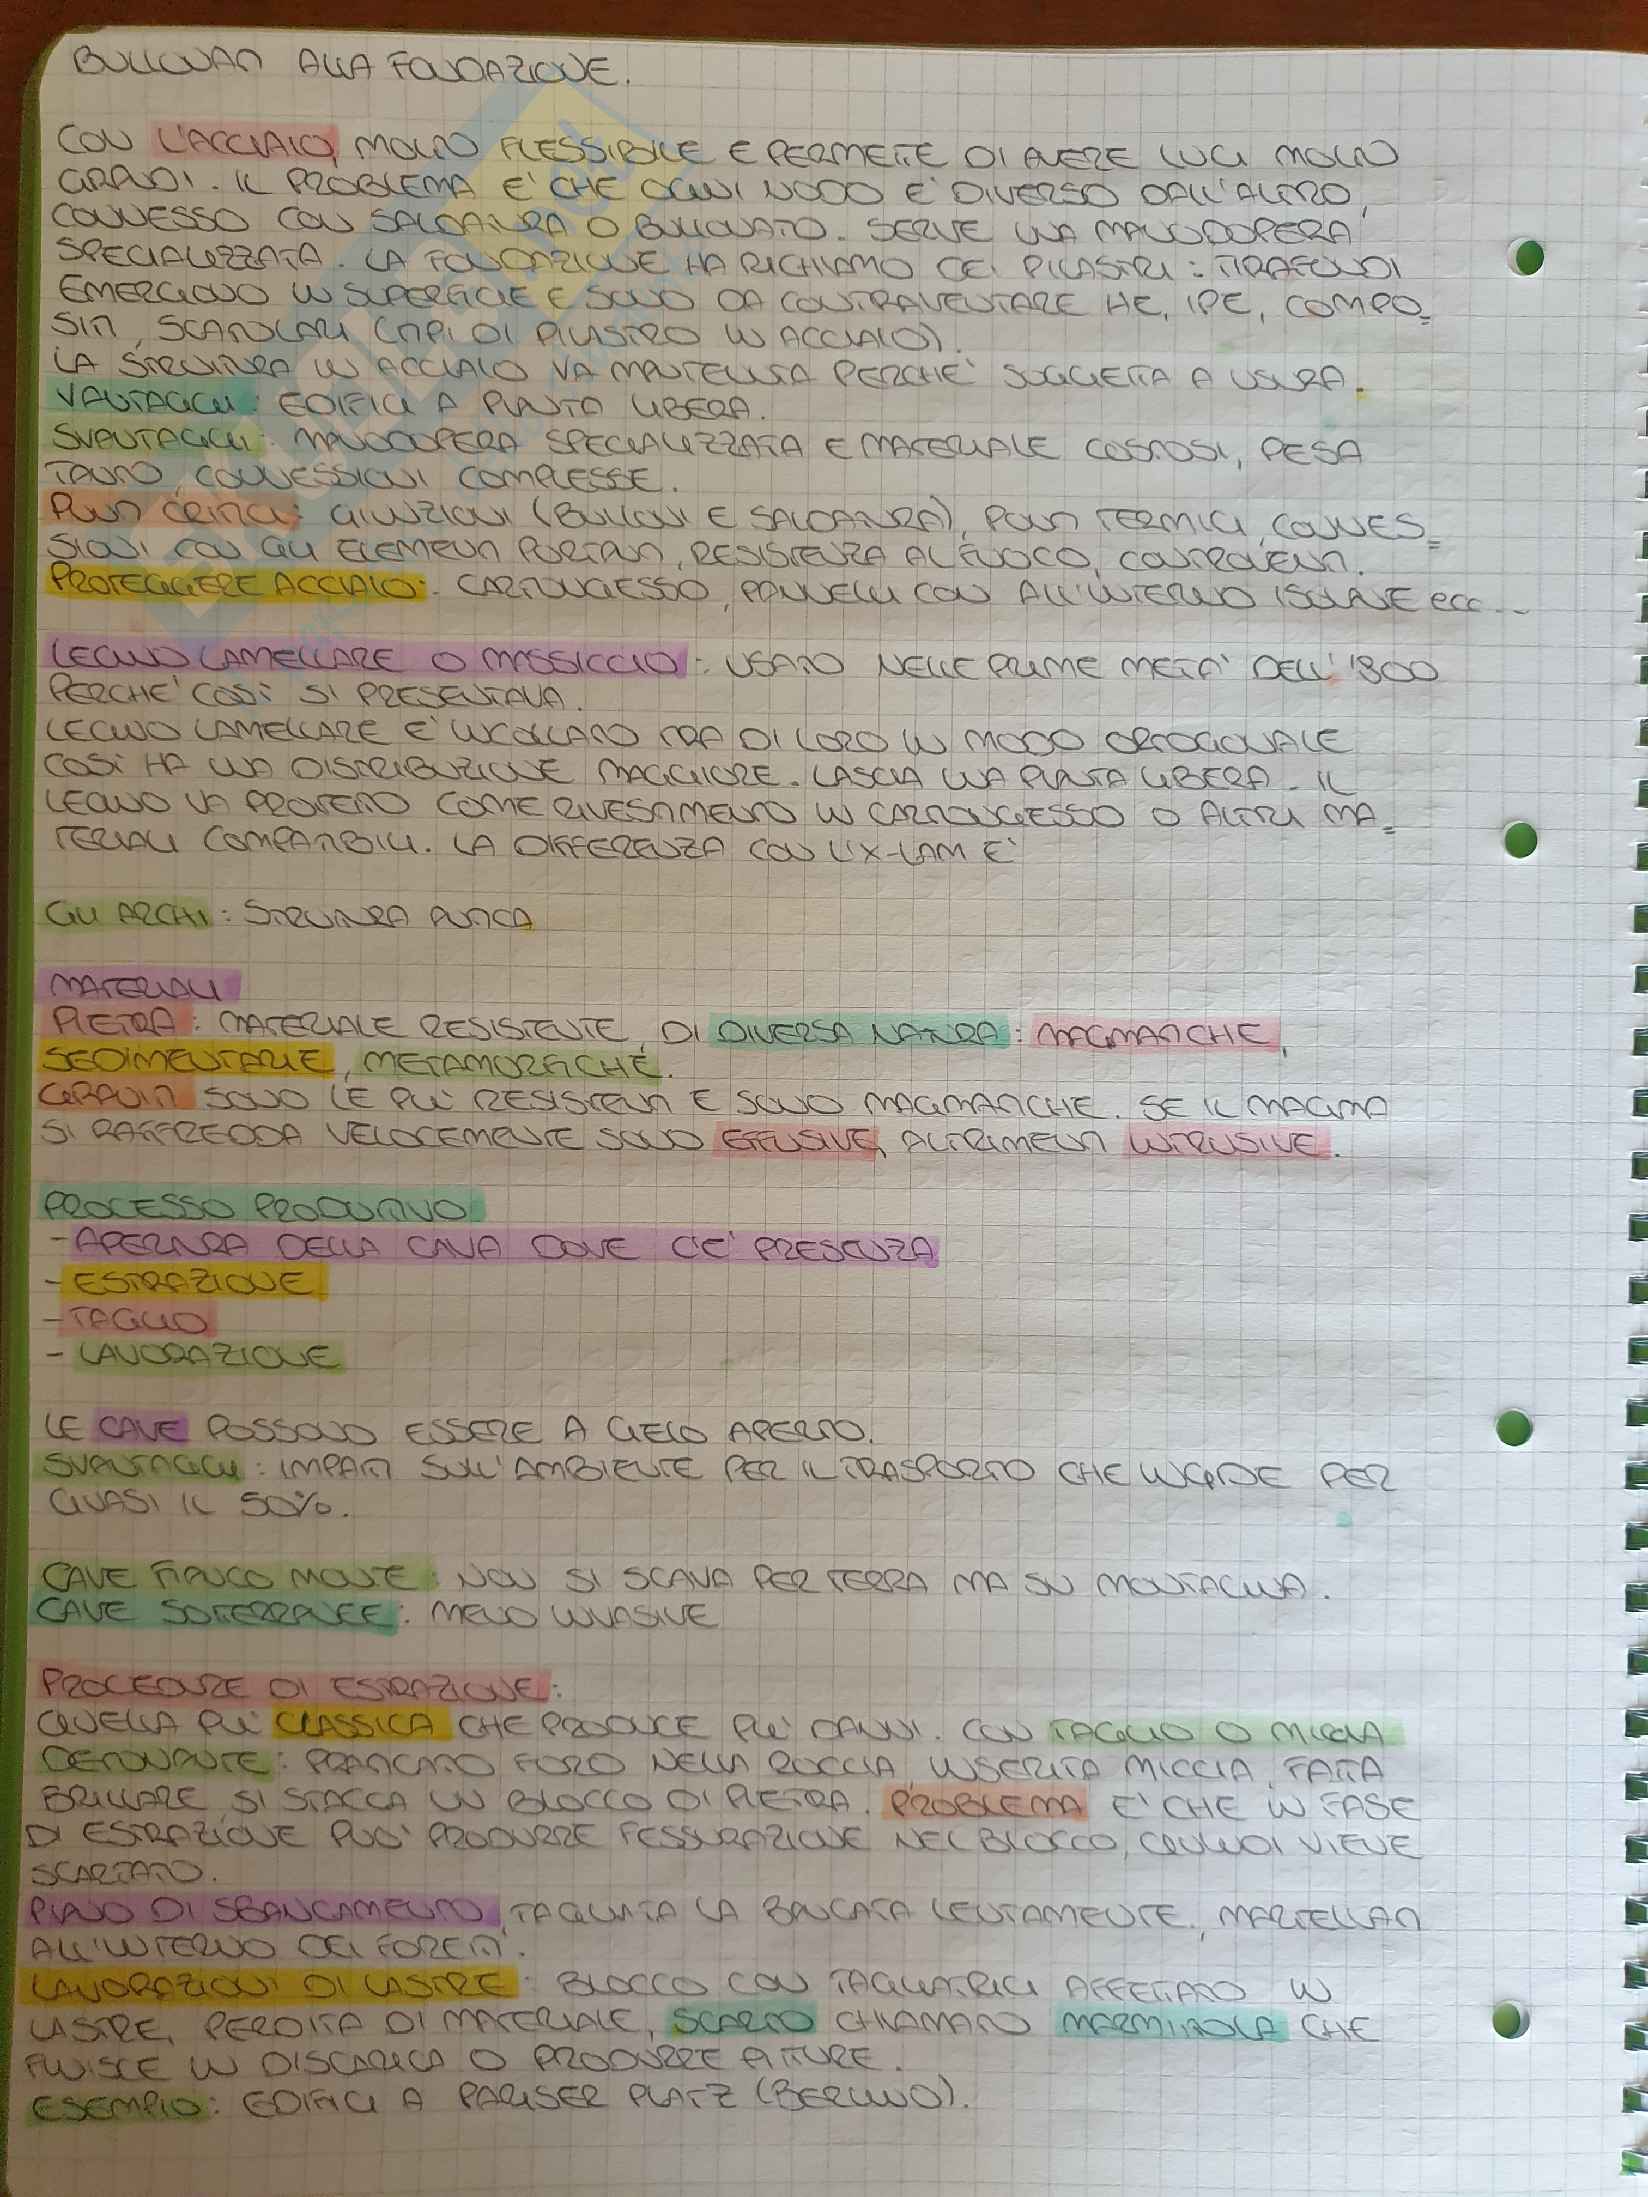 BULLONATI ALLA FONDAZIONE.
CON L'ACCIAIO, MOLTO FLESSIBILE E PERMETTE DI AVERE LUCI MOLTO
GRANDI. IL PROBLEMA E' CHE OGNI NODO E' DIVERSO DALL'ALTRO,
CONNESSO CON SALDATURA O BULLONATO. SERVE UNA MANODOPERA
SPECIALIZZATA. LA FONDAZIONE HA RICHIAMO DEI PILASTRI: TIRAFONDI
EMERGONO IN SUPERFICIE E SONO DA CONTROVENTARE HE, IPE, COMPO=
STI, SCATOLARI (TIPI DI PILASTRO IN ACCIAIO).
LA STRUTTURA IN ACCIAIO VA MANTENUTA PERCHE' SOGGETTA A USURA.
VANTAGGI: EDIFICI A PIANTA LIBERA.
SVANTAGGI: MANODOPERA SPECIALIZZATA E MATERIALE COSTOSI, PESA
TANTO, CONNESSIONI COMPLESSE.
PUNTI CRITICI: GIUNZIONI (BULLONI E SALDATURA), PONTI TERMICI, CONNES=
SIONI CON GLI ELEMENTI PORTATI, RESISTENZA AL FUOCO, CONTROVENTI.
PROTEGGERE ACCIAIO: CARTONGESSO, PANNELLI CON ALL'INTERNO ISOLANTE ecc...
LEGNO LAMELLARE O MASSICCIO: USATO NELLE PRIME META' DELL'800
PERCHE' COSI' SI PRESENTAVA.
LEGNO LAMELLARE E' INCOLLATO TRA DI LORO IN MODO ORTOGONALE
COSI' HA UNA DISTRIBUZIONE MAGGIORE. LASCIA UNA PIANTA LIBERA. IL
LEGNO VA PROTETTO COME RIVESTIMENTO IN CARTONGESSO O ALTRI MA=
TERIALI COMPATIBILI. LA DIFFERENZA CON L'X-LAM E'
GLI ARCHI: STRUTTURA
MATERIALI
PIETRA: MATERIALE RESISTENTE, DI DIVERSA NATURA: MAGMATICHE,
SEDIMENTARIE, METAMORFICHE.
GRANITI SONO LE PIU' RESISTENTI E SONO MAGMATICHE. SE IL MAGMA
SI RAFFREDDA VELOCEMENTE SONO EFFUSIVE, ALTRIMENTI INTRUSIVE.
PROCESSO PRODUTTIVO
-APERTURA DELLA CAVA DOVE C'E' PRESENZA
-ESTRAZIONE
-TAGLIO
-LAVORAZIONE
LE CAVE POSSONO ESSERE A CIELO APERTO.
SVANTAGGI: IMPATTI SULL'AMBIENTE PER IL TRASPORTO CHE INCIDE PER
QUASI IL 50%.
CAVE FIANCO MONTE: NON SI SCAVA PER TERRA MA SU MONTAGNA.
CAVE SOTTERRANEE: MENO INVASIVE
PROCEDURE DI ESTRAZIONE:
QUELLA PIU' CLASSICA CHE PRODUCE PIU' DANNI. CON TAGLIO O MICCIA
DETONANTE: PRATICATO FORO NELLA ROCCIA, INSERITA MICCIA, FATTA
BRILLARE, SI STACCA UN BLOCCO DI PIETRA. PROBLEMA E' CHE IN FASE
DI ESTRAZIONE PUO' PRODURRE FESSURAZIONE NEL BLOCCO, QUINDI VIENE
SCARTATO.
PIANO DI SBANCAMENTO, TAGLIATA LA BANCATA LENTAMENTE, MARTELLATI
ALL'INTERNO DEI FORETTI.
LAVORAZIONI DI LASTRE: BLOCCO CON TAGLIATRICI AFFETTATO IN
LASTRE, PERDITA DI MATERIALE, SCARTO CHIAMATO MARMITTOLA CHE
FINISCE IN DISCARICA O PRODURRE PITTURE.
ESEMPIO: EDIFICI A PARISER PLATZ (BERLINO).